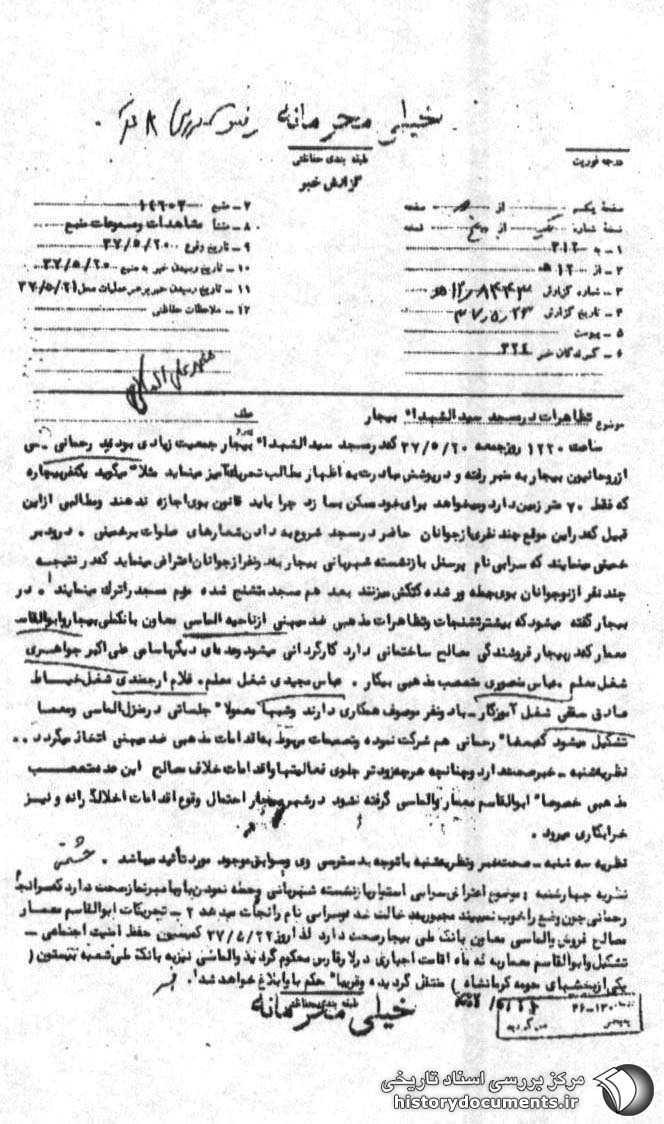 خیلی محرمانه
طبقه بندی حفاظتی
گزارش خبر
درجه فوریت
صفحه یکم از صفحه
نسخه شماره یک از پنج نسخه
۱ – به ۳۱۲
۲ – از ۵۱۲
۳ – شماره گزارش
۴ – تاریخ گزارش ۳۷٫۵٫۲۳
۵ – پیوست
۶ – گیرندگان خبر ۳۲۴
۷ – منبع ۱۴۶۰۲
۸ – منشأ مشاهدات و مسموعات منبع
۹ – تاریخ وقوع ۳۷/۵/۲۰
۱۰ – تاریخ رسیدن خبر به منبع ۳۷/۵/۲۰
۱۱ – تاریخ رسیدن خبر به رهبر عملیات محل ۳۷/۵/۲۱
۱۲ – ملاحظات حفاظتی
موضوع تظاهرات در مسجد سیدالشهداء بیجار
ساعت ۱۲۲۰ روز جمعه ۳۷/۵/۲۰ که در مسجد سیدالشهداء بیجار جمعیت زیادی بودند رحمانی یکی
از روحانیون بیجار به منبر رفته و در پوشش مبادرت به اظهار مطالب تحریک‌آمیز مینماید مثلاً میگوید یکنفر بیچاره
که فقط ۷۰ متر زمین دارد و میخواهد برای خود مسکن بسازد چرا باید قانون بوی اجازه ندهند و مطالبی از این
قبیل که در این موقع چند نفری از جوانان حاضر در مسجد شروع به دادن شعارهای صلوات بر خمینی . درود بر
خمینی مینمایند که سرابی نام پرسنل بازنشسته شهربانی بیجار به دو نفر از جوانان اعتراض مینماید که در نتیجه
چند نفر از نوجوانان بوی حمله ور شده کتکش میزنند بعد هم مسجد متشنج شده مردم مسجد را ترک مینمایند . در
بیجار گفته میشود که بیشتر تشنجات و تظاهرات مذهبی ضد میهنی از ناحیه الماسی معاون بانک ملی بیجار و ابوالقاسم
معمار که در بیجار فروشندگی مصالح ساختمانی دارد کارگردانی میشود و عده‌ای دیگر باسامی علی اکبر جواهری
شغل معلم . عباس منصوری متعصب مذهبی بیکار . عباس مجیدی شغل معلم . غلام ارجمندی شغل خیاط
صادق سقلی شغل آموزگار – با دو نفر موصوف همکاری دارند و شبها معمولاً جلساتی در منزل الماسی و معمار
تشکیل میشود که بعضاً رحمانی هم شرکت نموده و تصمیمات مربوط به اقدامات مذهبی ضد میهنی اتخاذ میگردد . .
نظریه شنبه – خبر صحت دارد و چنانچه هرچه زودتر جلوی فعالیتها و اقدامات خلاف مصالح این عده متعصب
مذهبی خصوصاً ابوالقاسم معمار و الماسی گرفته نشود در شهر بیجار احتمال وقوع اقدامات اخلالگرانه و نیز
خرابکاری میرود .
نظریه سه شنبه – صحت خبر و نظریه شنبه با توجه به دسترسی وی و سوابق موجود مورد تأیید میباشد .
نظریه چهارشنبه : موضوع اعتراض سرابی استوار بازنشسته شهربانی و حمله نمودن باو با میز نماز صحت دارد که سرانجام
رحمانی چون وضع را خوب نمی‌بیند مجبور به دخالت شده و سرابی نام را نجات میدهد ۲ – تحریکات ابوالقاسم معمار
مصالح فروش و الماسی معاون بانک ملی بیجار صحت دارد لذا روز ۳۷/۵/۲۲ کمیسیون حفظ امنیت اجتماعی –
تشکیل و ابوالقاسم معمار به نه ماه اقامت اجباری در لار فارس محکوم گردید و الماسی نیز به بانک ملی شعبه بیستون (
یکی از بخشهای حومه کرمانشاه ) منتقل گردیده و قریباً حکم باو ابلاغ خواهد شد .
طبقه بندی حفاظتی
خیلی محرمانه
۳۶–۱۳۰
مرکز بررسی اسناد تاریخی
historydocuments.ir